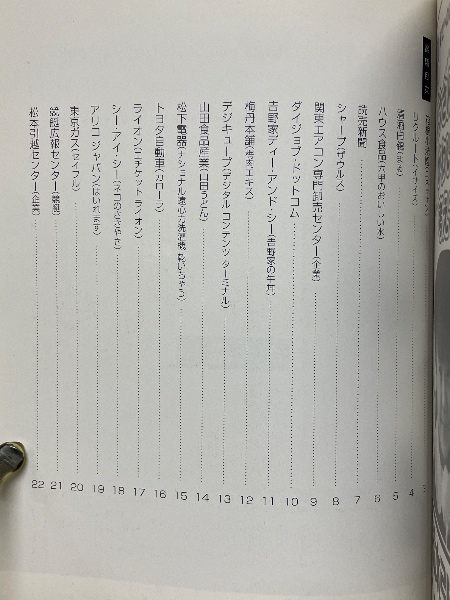 リクルート(イサイズ) 4
清酒白鶴(まる) 5
ハウス食品(六甲のおいしい水) 6
読売新聞 7
シャープ(ザウルス) 8
関東エアコン専門卸売センター(企業) 9
ダイジョブ・ドットコム 10
吉野家ディー・アンド・シー(吉野家の牛丼) 11
梅丹本舗(梅肉エキス) 12
デジキューブ(デジタルコンテンツターミナル) 13
山田食品産業(山田うどん) 14
松下電器(ナショナル遠心力洗濯機乾いちゃう) 15
トヨタ自動車(カローラ) 16
ライオン(エチケットライオン) 17
シー・アイ・シー(ネコのささやき) 18
アリコジャパン(はいれます) 19
東京ガス(セイフル) 20
競艇広報センター(競艇) 21
松本引越センター(企業) 22